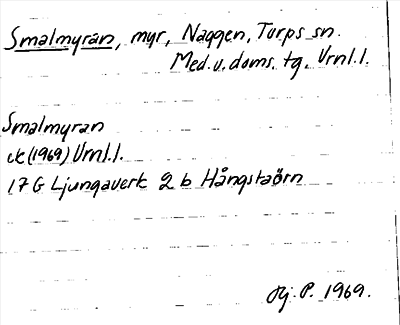 Smalmyran, myr, Naggen, Torps sn.
Med. v. doms. tg. Vrnl. l.
Smalmyran
ek (1969) Vrnl. l.
17 G Ljungaverk 2 b Hångstaörn
Hj. P. 1969.